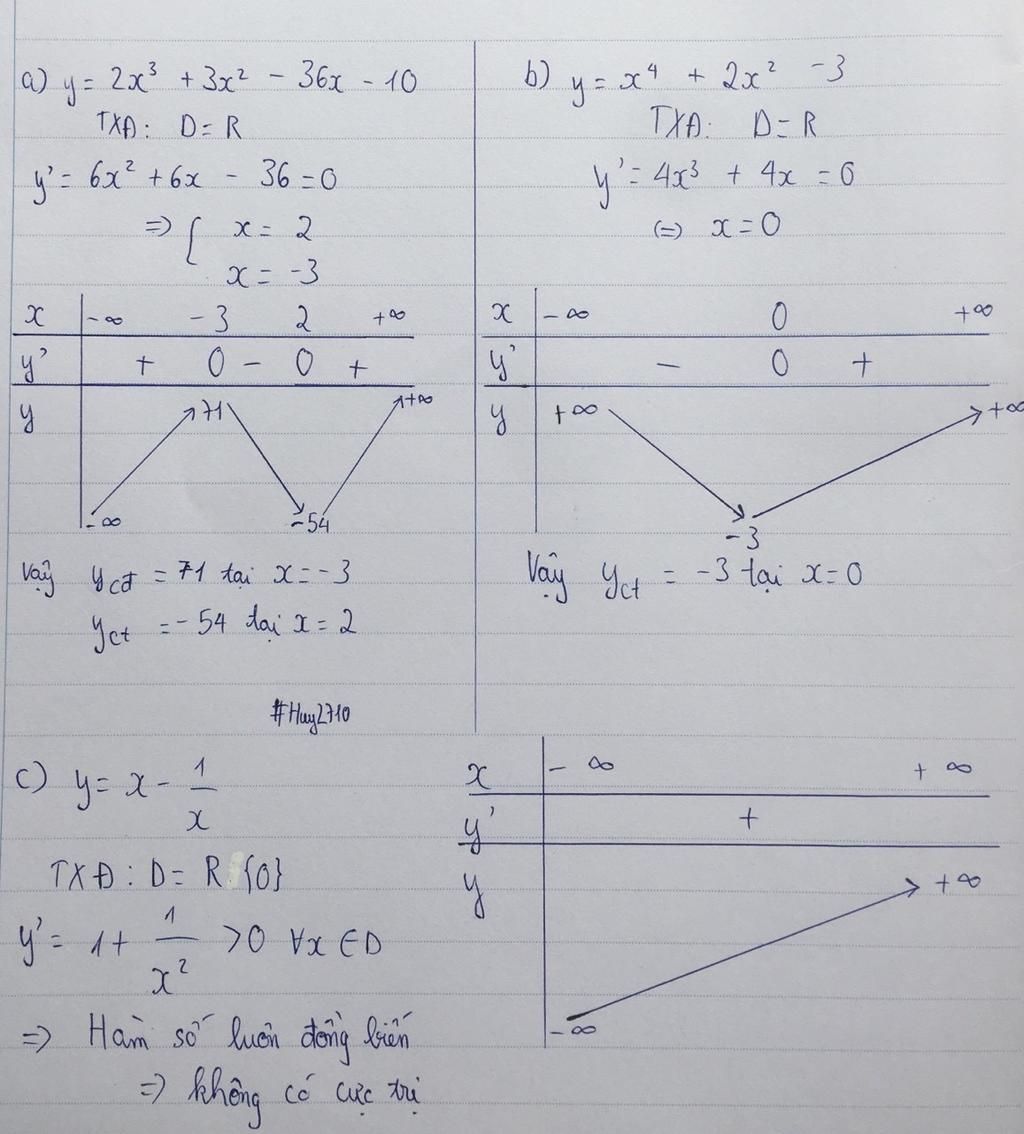 a) y = 2x³ + 3x² - 36x - 10
TXĐ: D = R
y' = 6x² + 6x - 36 = 0
=> { x = 2
x = -3
x -∞ -3 2 +∞
y' + 0 - 0 +
y 71 +∞
-∞ -54
Vậy ycđ = 71 tại x = -3
yct = -54 tại x = 2
#Huy2710
b) y = x⁴ + 2x² - 3
TXĐ: D = R
y' = 4x³ + 4x = 0
(=) x = 0
x -∞ 0 +∞
y' - 0 +
y +∞ +∞
-3
Vậy yct = -3 tại x = 0
c) y = x - 1/x
TXĐ: D = R {0}
y' = 1 + 1/x² > 0 ∀x ∈ D
=> Hàm số luôn đồng biến
=> không có cực trị
x -∞ +∞
y' +
y +∞
-∞